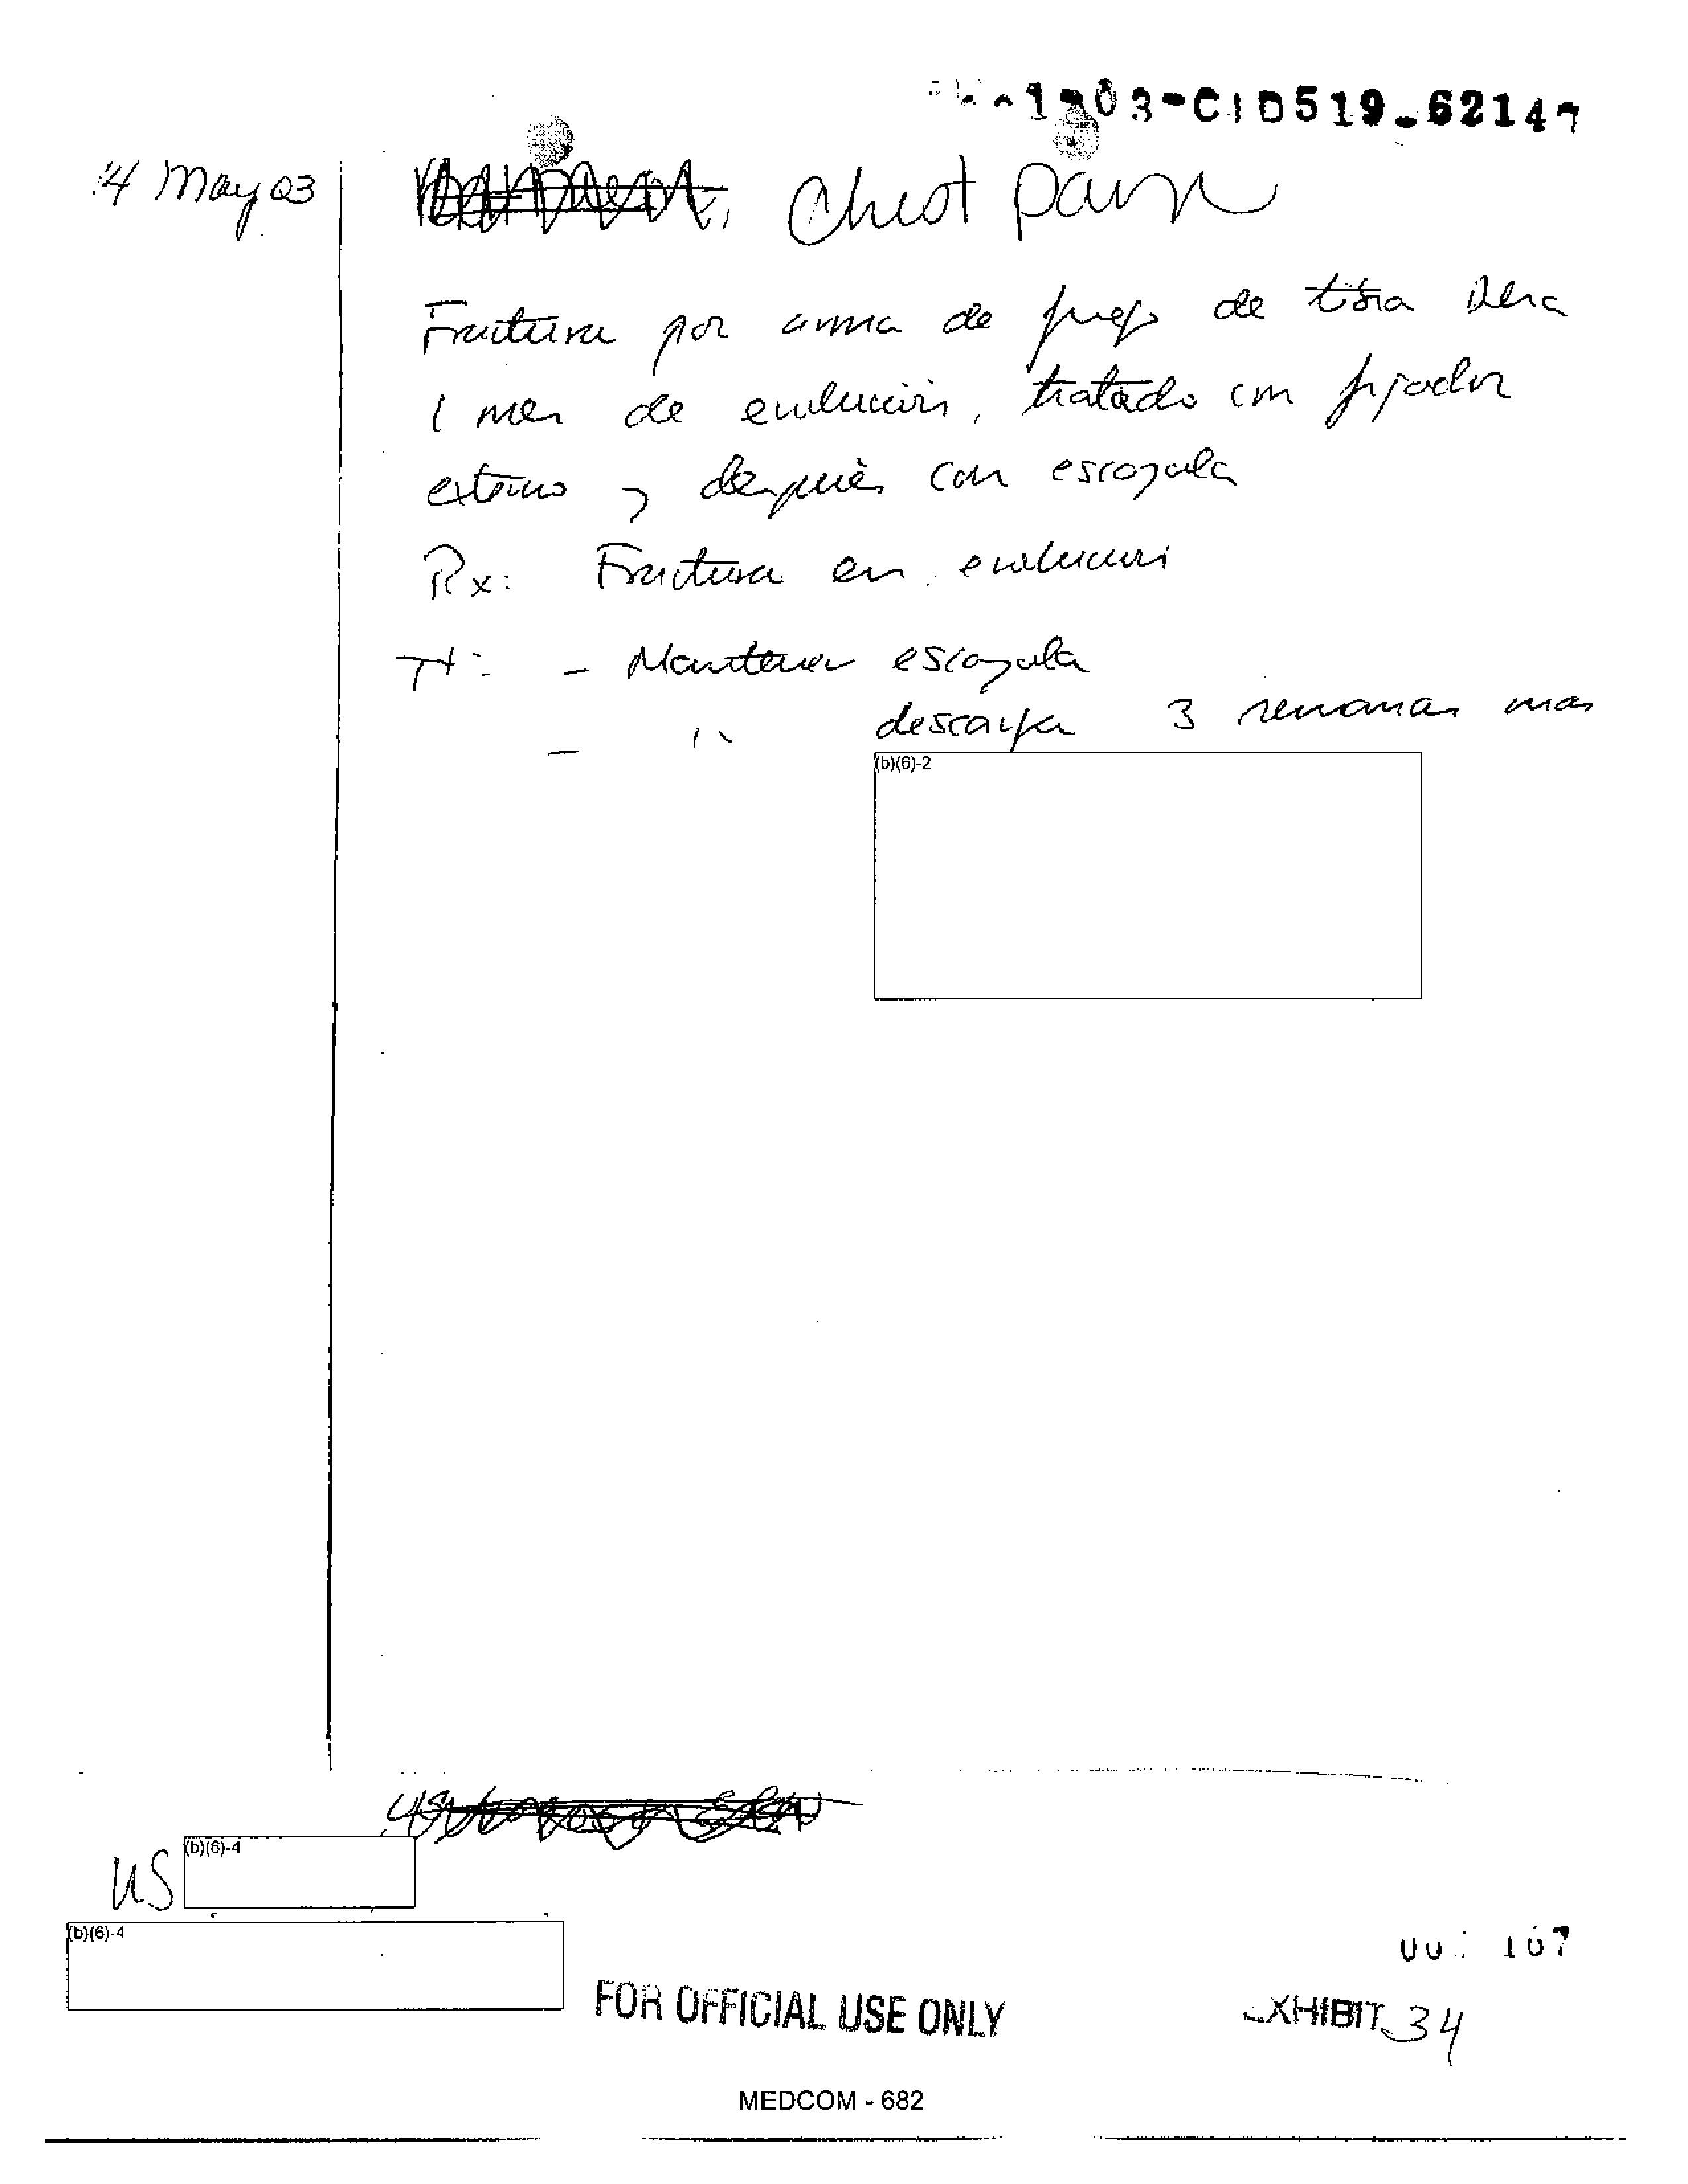 03-CID519-62147
4 May 03
Chest pain
Fractura por arma de fuego de tibia Dcha
1 mes de evolución, tratado con fijador
externo y después con escayola
Rx: Fractura en evolucion
Tt: - Mantener escayola
- " descarga 3 semanas mas
(b)(6)-2
(b)(6)-4
US
(b)(6)-4
107
FOR OFFICIAL USE ONLY
EXHIBIT 34
MEDCOM - 682